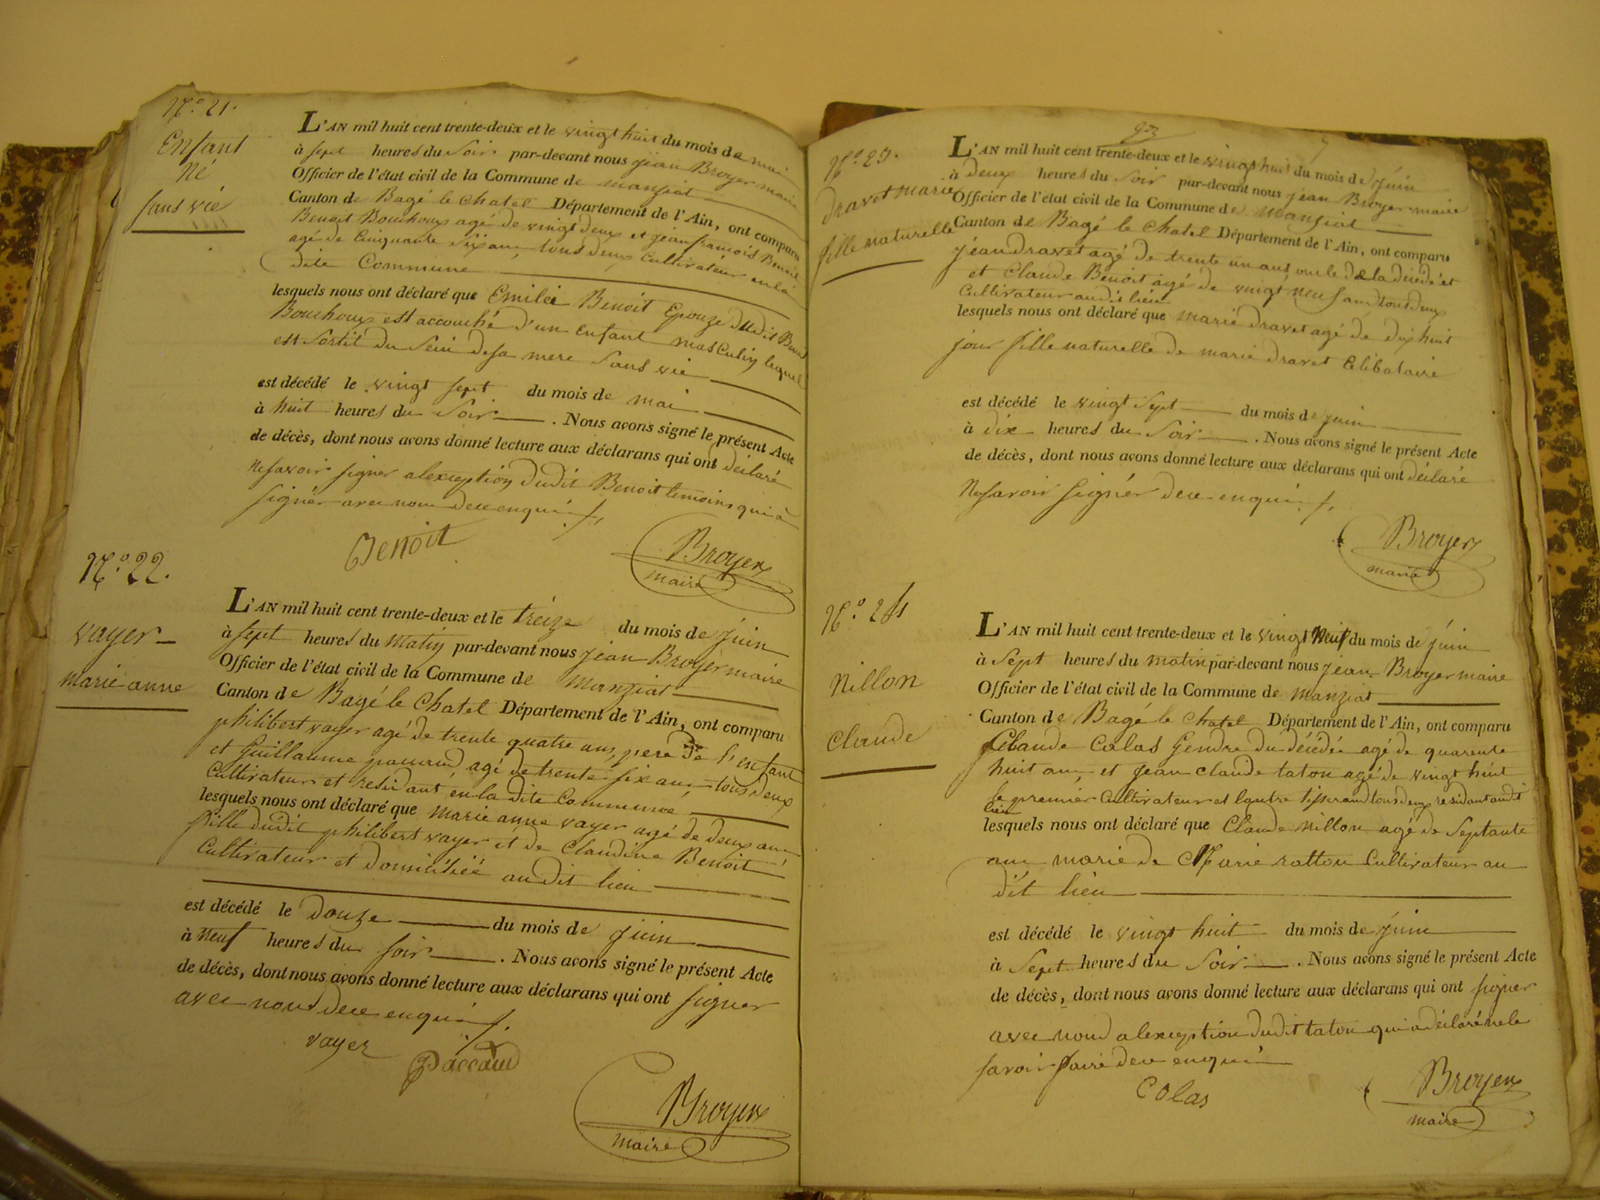 N.° 21.
Enfant
Né
Sans vie
L'AN mil huit cent trente-deux et le vingt huit du mois de mai
à sept heures du Soir par-devant nous jean Broyer maire
Officier de l'état civil de la Commune de manziat
Canton de Bagé le chatel Département de l'Ain, ont comparu
Benoit Bouchoux agé de vingt deux et jean françois Benoit
agé de Cinquante six ans tous deux Cultivateur en la
dite Commune
lesquels nous ont déclaré que Emilie Benoit Epouze dudit
Bouchoux est accouché d'un Enfant masculin lequel
est Sortit du Sein de sa mere Sans vie
est décédé le vingt sept du mois de mai
à huit heures du Soir. Nous avons signé le présent Acte
de décès, dont nous avons donné lecture aux déclarans qui ont déclaré
Ne savoir signer alexeption dudit Benoit temoins qui à
signér avec nous de ce enquis
Benoit
Broyer
maire
N.° 22.
vayer
marie anne
L'AN mil huit cent trente-deux et le treize du mois de juin
à sept heures du matin par-devant nous jean Broyer maire
Officier de l'état civil de la Commune de Manziat
Canton de Bagé le Chatel Département de l'Ain, ont comparu
philibert vayer agé de trente quatre ans pere de l'enfant
et Guillaume paccaud agé de trente six ans tous deux
Cultivateur et residant én la dite Commune
lesquels nous ont déclaré que Marie anne vayer agé de deux ans
fille dudit philibert vayer et de Claudine Benoit
Cultivateur et domiciliée au dit lieu
est décédé le Douze du mois de juin
à Neuf heures du soir. Nous avons signé le présent Acte
de décès, dont nous avons donné lecture aux déclarans qui ont signer
avec nous de ce enquis
vayer
Paccaud
Broyer
maire
93
N.° 23.
Dravet marie
fille naturelle
L'AN mil huit cent trente-deux et le vingt huit du mois de juin
à Deux heures du Soir par-devant nous jean Broyer maire
Officier de l'état civil de la Commune de Manziat
Canton de Bagé le Chatel Département de l'Ain, ont comparu
jean dravet agé de trente un ans oncle de la décédé et
et Claude Benoit agé de vingt neuf ans tous deux
Cultivateur au dit lieu
lesquels nous ont déclaré que marie dravet agé de dix huit
jour fille naturelle de marie dravet Célibataire
est décédé le vingt Sept du mois de juin
à dix heures du Soir. Nous avons signé le présent Acte
de décès, dont nous avons donné lecture aux déclarans qui ont déclaré
Ne savoir signér de ce enquis
Broyer
maire
N.° 24
Nillon
Claude
L'AN mil huit cent trente-deux et le vingt Neuf du mois de juin
à Sept heures du matin par-devant nous jean Broyer maire
Officier de l'état civil de la Commune de manziat
Canton de Bagé le Chatel Département de l'Ain, ont comparu
Claude Colas Gendre du décédée agé de quarente
huit ans et jean claude taton agé de vingt huit
le premier Cultivateur et lautre tisserand tous deux residant audit
lieu
lesquels nous ont déclaré que Claude Nillon agé de Septante
ans marie de Marie ratton Cultivateur au
dit lieu
est décédé le vingt huit du mois de juin
à Sept heures du Soir. Nous avons signé le présent Acte
de décès, dont nous avons donné lecture aux déclarans qui ont signer
avec nous alexeption dudit taton qui a déclaré ne le
savoir faire de ce enquis
Colas
Broyer
maire